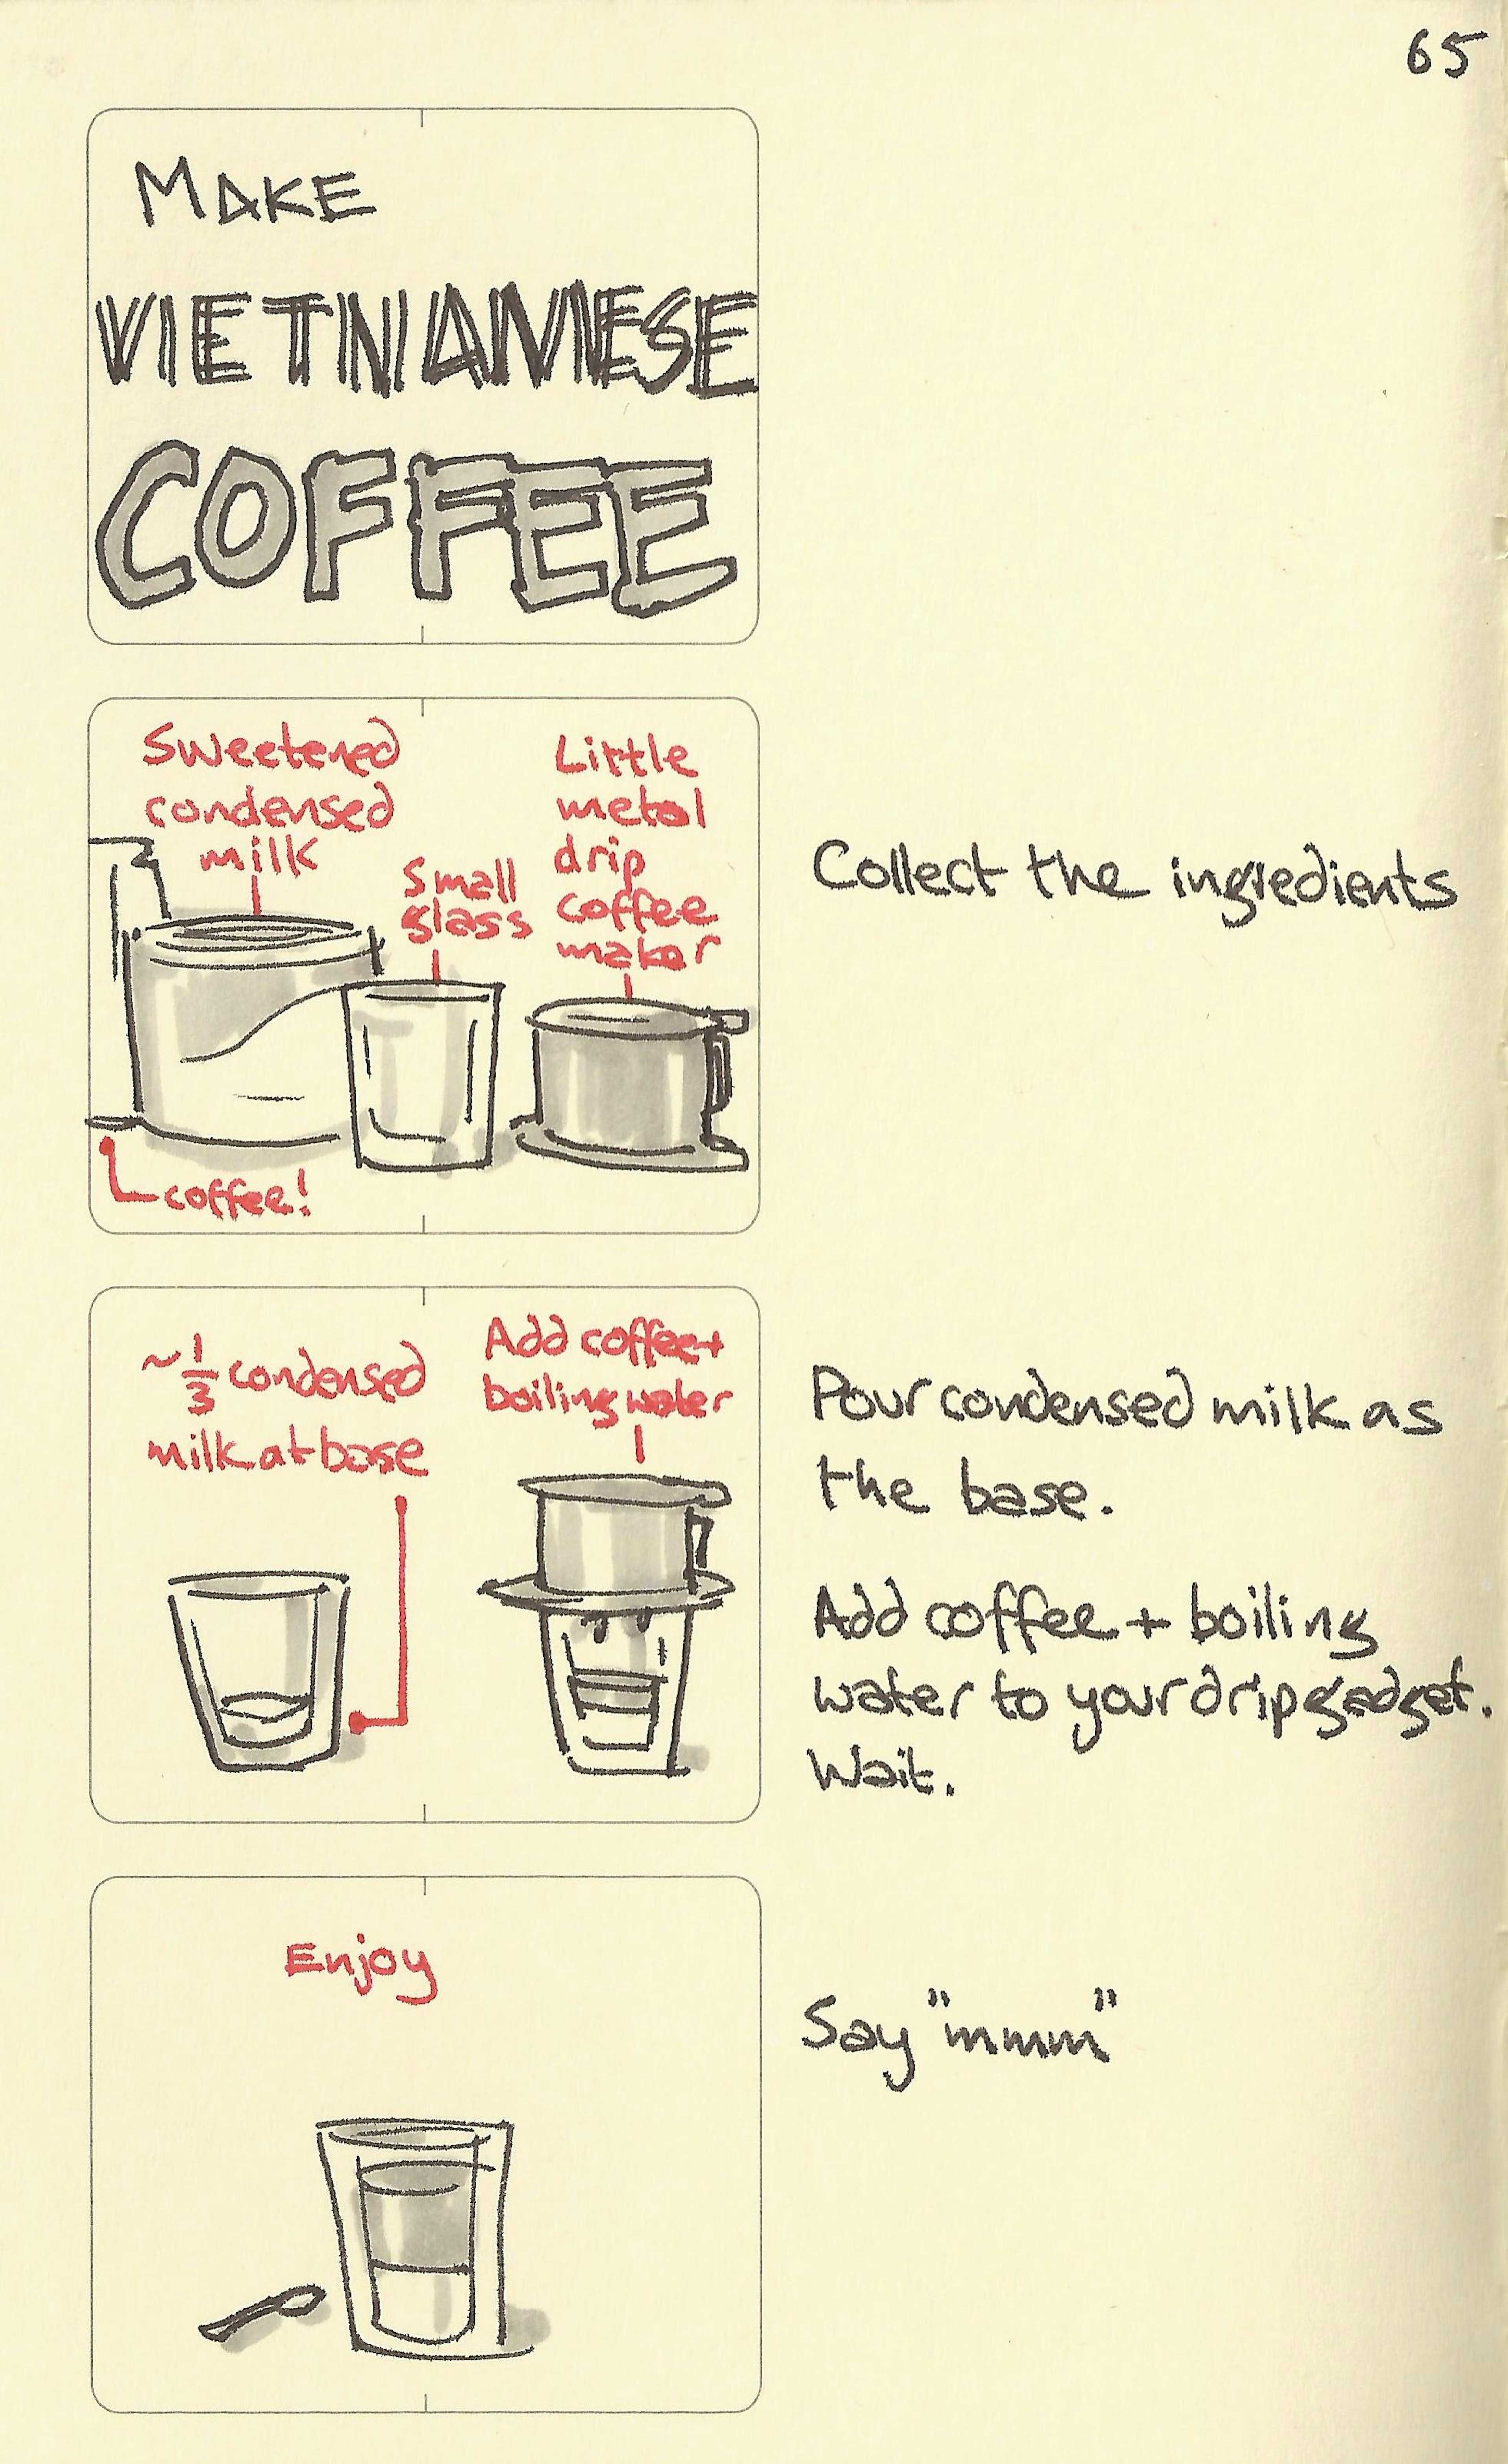 65
MAKE
VIETNAMESE
COFFEE
Sweetened
condensed
milk
Small
glass
Little
metal
drip
coffee
maker
coffee!
Collect the ingredients
~1/3 condensed
milk at base
Add coffee +
boiling water
Pour condensed milk as
the base.
Add coffee + boiling
water to your drip gadget.
Wait.
Enjoy
Say "mmm"